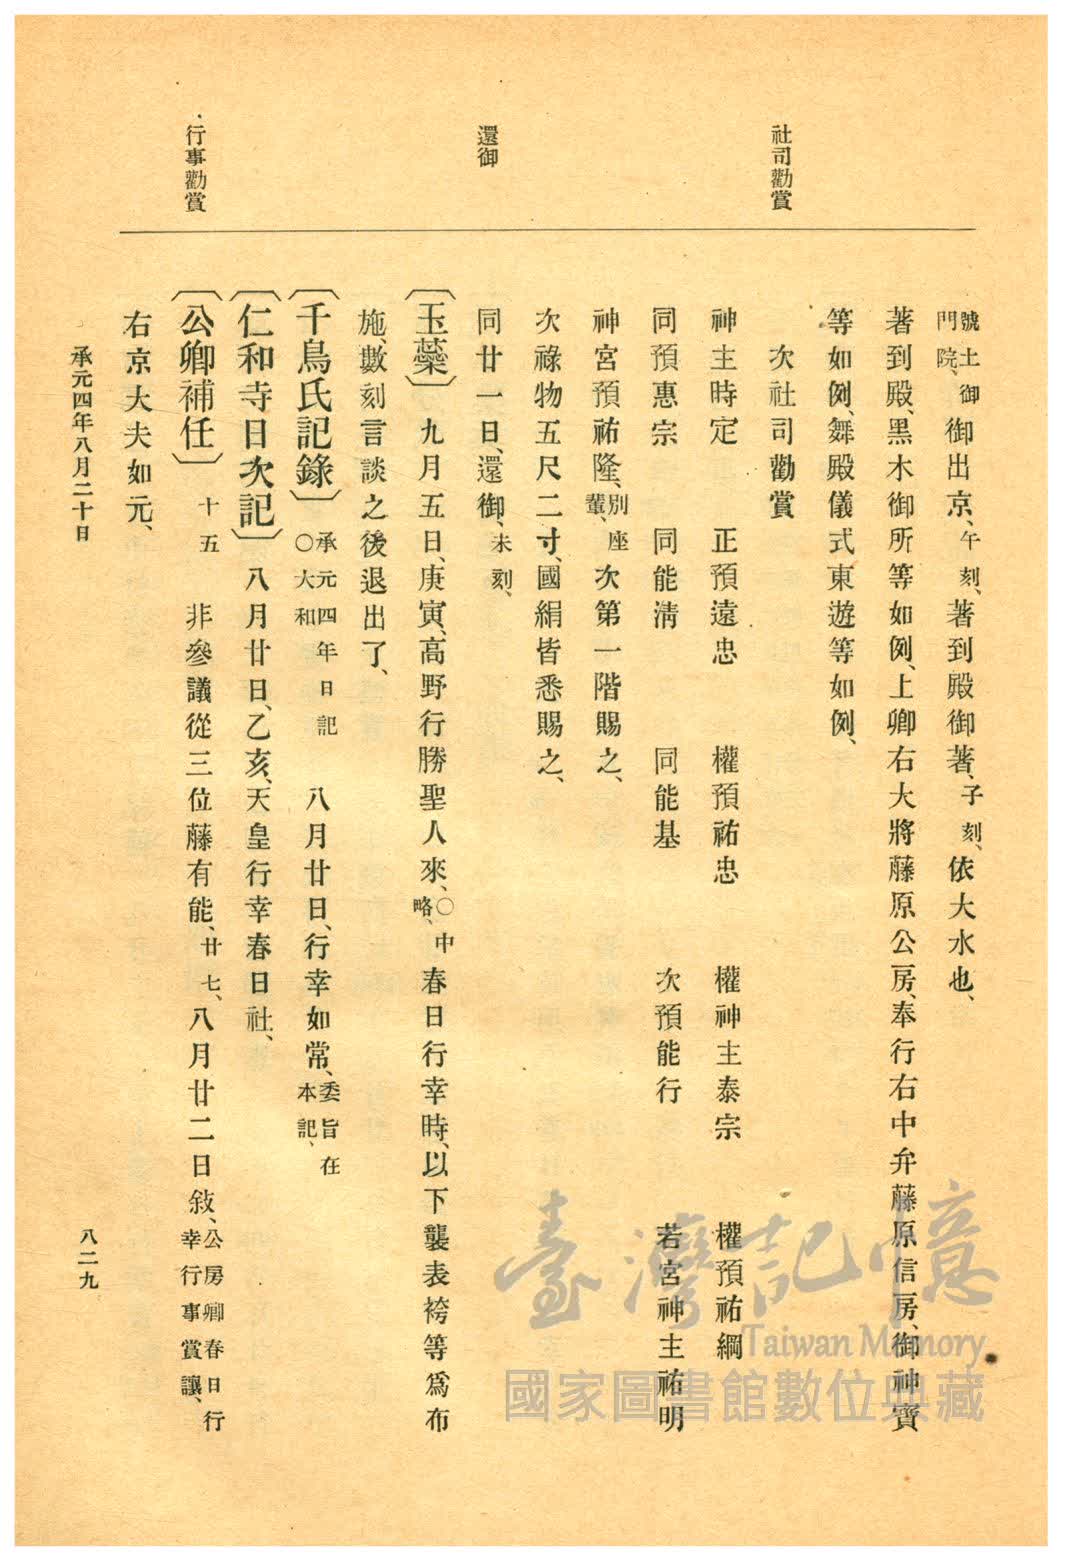 社司勸賞
還御
行事勸賞
號土御門院、御出京、午刻、著到殿御著、子刻、依大水也、
著到殿、黑木御所等如例、上卿右大將藤原公房、奉行右中弁藤原信房、御神寶
等如例、舞殿儀式東遊等如例、
次社司勸賞
神主時定　正預遠忠　權預祐忠　權神主泰宗　權預祐綱
同預惠宗　同能淸　同能基　次預能行　若宮神主祐明
神宮預祐隆、別座輩、次第一階賜之、
次祿物五尺二寸、國絹皆悉賜之、
同廿一日、還御、未刻、
〔玉蘂〕九月五日、庚寅、高野行勝聖人來、○中略、春日行幸時、以下襲表袴等爲布
施、數刻言談之後退出了、
〔千鳥氏記錄〕承元四年日記○大和　八月廿日、行幸如常、委旨在本記、
〔仁和寺日次記〕八月廿日、乙亥、天皇行幸春日社、
〔公卿補任〕十五　非參議從三位藤有能、廿七、八月廿二日敍、公房卿春日行幸行事賞讓、
右京大夫如元、
承元四年八月二十日
八二九
臺灣記憶
Taiwan Memory
國家圖書館數位典藏